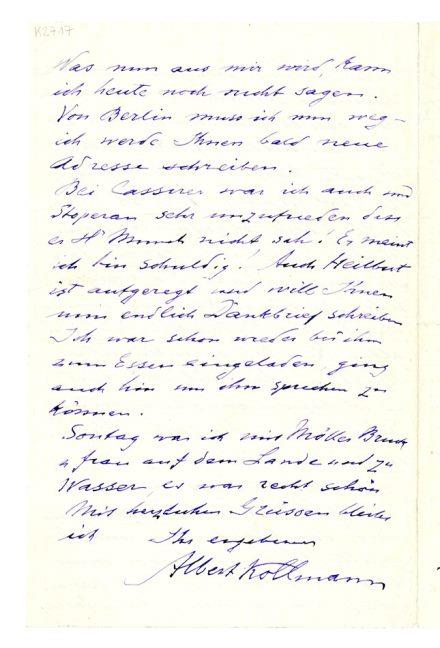 K2717
Was nun aus mir wird, kann
ich heute noch nicht sagen.
Von Berlin muss ich nun weg –
ich werde Ihnen bald neue
Adresse schreiben.
Bei Cassirer war ich auch und
sehr unzufrieden dass
er H Munch nicht sah! Er meint
ich bin schuldig! Auch Heilbut
ist aufgeregt und will Ihnen
nun endlich Dankbrief schreiben
Ich war schon wieder bei ihm
zum Essen eingeladen ging
auch hin um ihn sprechen zu
können.
Sontag war ich mit Möller Bruck
u frau auf dem Lande und zu
Wasser es war recht schön
Mit herzlichen Grüssen bleibe
ich Ihr ergebener
Albert Kollmann